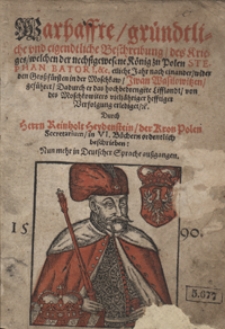 Warhaffte / gründtli-
che vnd eigendtliche Beschreibung / des Krie-
ges / welchen der nechstgewesene König zu Polen STE-
PHAN BATORI, &c. etliche Jahr nach einander / wider
den Großfürsten in der Moschkaw / Iwan Wasilowitzen /
geführet / Dadurch er das hochbedrengte Liffland / von
des Moschkowiters vieljähriger hefftiger
Verfolgung erlediget / &c.
Durch
Herrn Reinholt Heydenstein / der Kron Polen
Secretarium / in VI. Büchern ordentlich
beschrieben:
Nun mehr in Deutscher Sprache außgangen.
15 90.